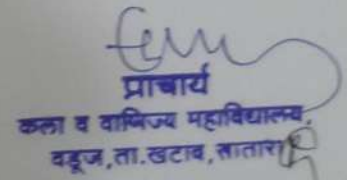 प्राचार्य
कला व वाणिज्य महाविद्यालय,
वडूज, ता.खटाव, सातारा